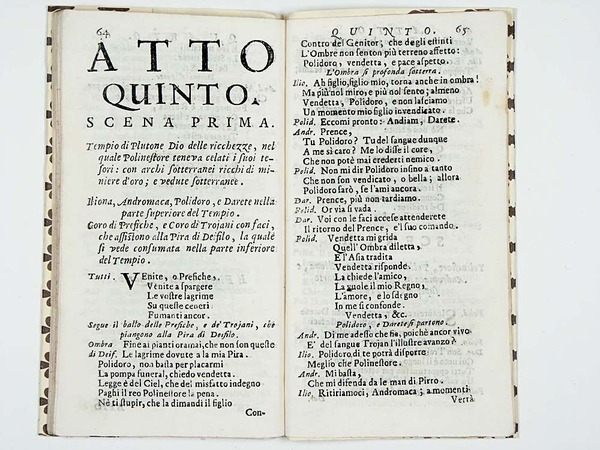 64
ATTO
QUINTO.
SCENA PRIMA.
Tempio di Plutone Dio delle ricchezze, nel
quale Polinestore teneva celati i suoi te-
sori: con archi sotterranei ricchi di mi-
niere d'oro; e vedute sotterranee.
Iliona, Andromaca, Polidoro, e Darete nella
parte superiore del Tempio.
Coro di Prefiche, e Coro di Trojani con faci,
che assistono alla Pira di Deifilo, la quale
si vede consumata nella parte inferiore
del Tempio.
Tutti. VEnite, o Prefiche,
Venite a spargere
Le vostre lagrime
Su queste ceneri
Fumanti ancor.
Segue il ballo delle Prefiche, e de' Trojani, che
piangono alla Pira di Deifilo.
Ombra Fine ai pianti oramai, che non son queste
di Deif. Le lagrime dovute a la mia Pira.
Polidoro, non basta per placarmi
La pompa funeral, chiedo vendetta.
Legge è del Ciel, che del misfatto indegno
Paghi il reo Polinestore la pena.
Nè ti stupir, che la dimandi il figlio
Con-
QUINTO. 65
Contro del Genitor; che degli estinti
L'Ombre non senton più terreno affetto:
Polidoro, vendetta, e pace aspetto.
L'Ombra si profonda sotterra.
Ilio. Ah figlio, figlio mio, torna anche in ombra!
Ma più nol miro, e più nol sento; almeno
Vendetta, Polidoro, e non lasciamo
Un momento mio figlio invendicato.
Polid. Eccomi pronto: Andiam, Darete.
Andr. Prence,
Tu Polidoro? Tu del sangue dunque
A me sì caro? Me lo disse il core,
Che non potè mai crederti nemico.
Polid. Non mi dir Polidoro insino a tanto
Che non son vendicato, o bella; allora
Polidoro farò, se l'ami ancora.
Dar. Prence, più non tardiamo.
Polid. Or via si vada.
Dar. Voi con le faci accese attenderete
Il ritorno del Prence, e'l suo comando.
Polid. Vendetta mi grida
Quell'Ombra diletta,
E l'Asia tradita
Vendetta risponde.
La chiede l'amico,
La vuole il mio Regno,
L'amore, e lo sdegno
In me si confonde.
Vendetta, &c.
Polidoro, e Darete si partono.
Andr. Di me adesso che fia, poichè ancor vivo
E' del sangue Trojan l'illustre avanzo?
Ilio. Polidoro di te potrà disporre
Meglio che Polinestore.
Andr. Mi basta,
Che mi difenda da le man di Pirro.
Ilio. Ritiriamoci, Andromaca; a momenti
Verrà